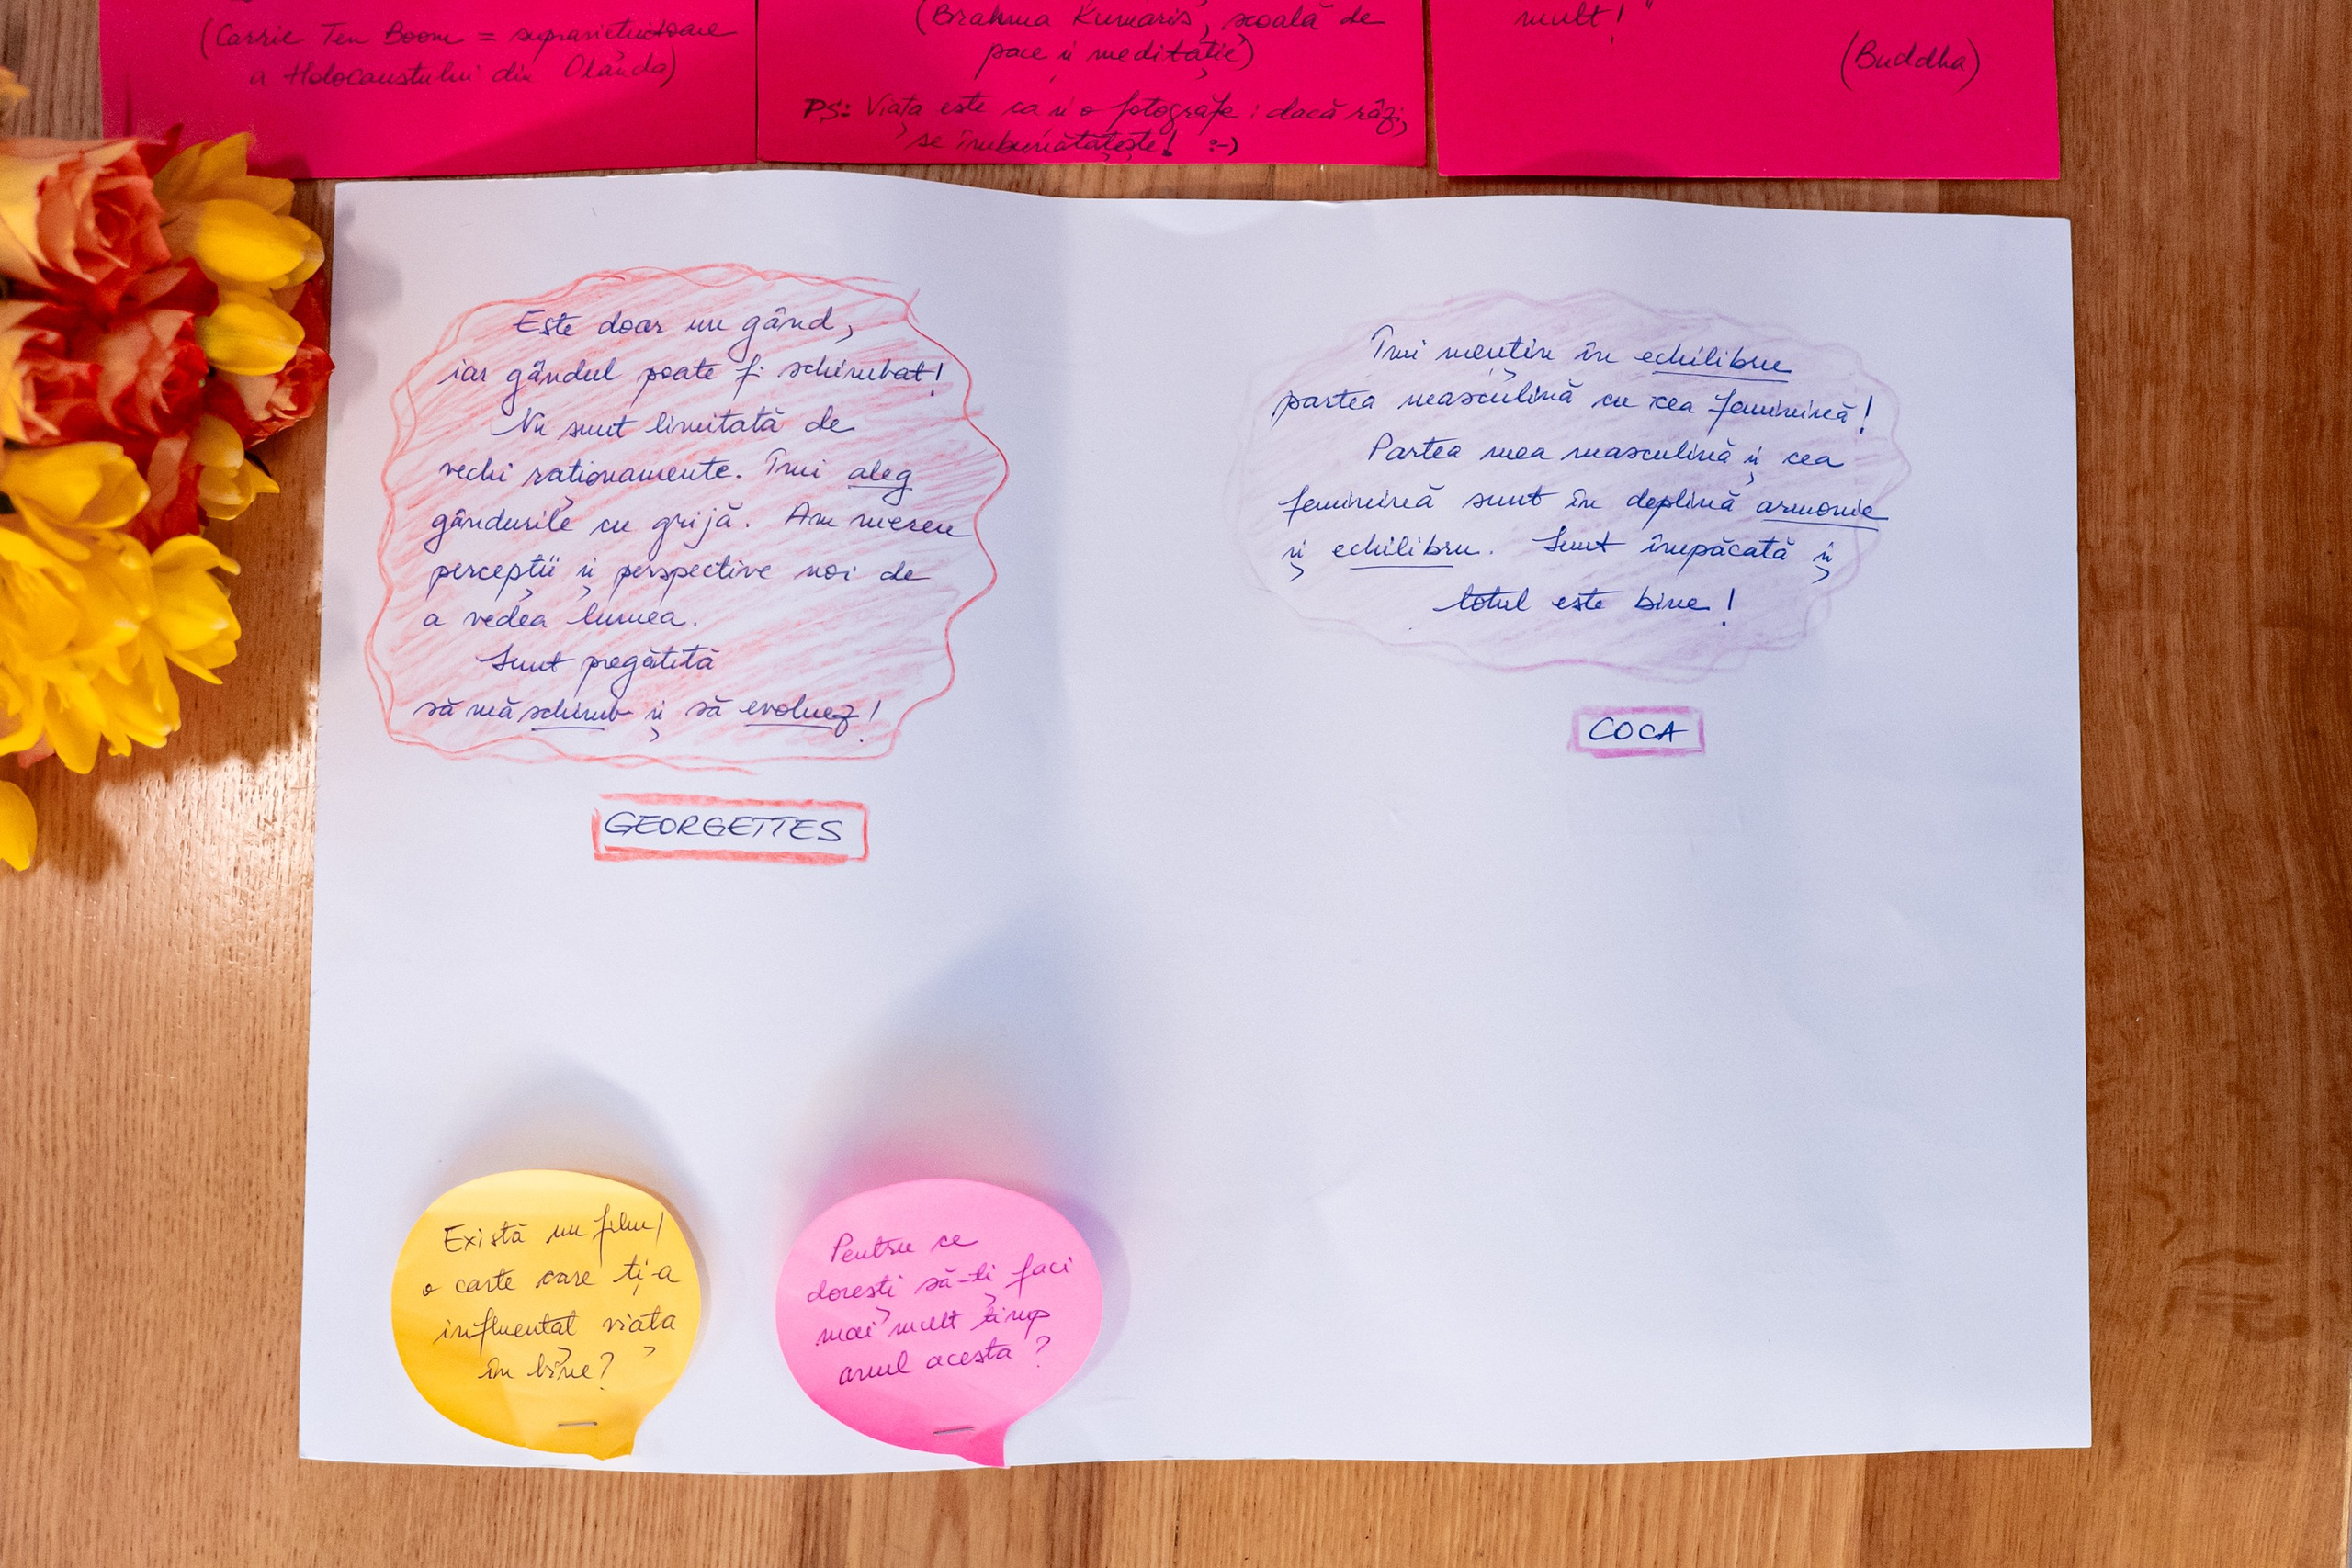 (Carrie Ten Boom = supraviețuitoare
a Holocaustului din Olanda)
(Brahma Kumaris, școală de
pace și meditație)
PS: Viața este ca și o fotografie: dacă râzi,
se îmbunătățește! :-)
mult!"
(Buddha)
Este doar un gând,
iar gândul poate fi schimbat!
Nu sunt limitată de
vechi raționamente. Îmi aleg
gândurile cu grijă. Am mereu
percepții și perspective noi de
a vedea lumea.
Sunt pregătită
să mă schimb și să evoluez!
GEORGETTES
Îmi mențin în echilibru
partea masculină cu cea feminină!
Partea mea masculină și cea
feminină sunt în deplină armonie
și echilibru. Sunt împăcată și
totul este bine!
COCA
Există un film/
o carte care ți-a
influențat viața
în bine?
Pentru ce
dorești să-ți faci
mai mult timp
anul acesta?